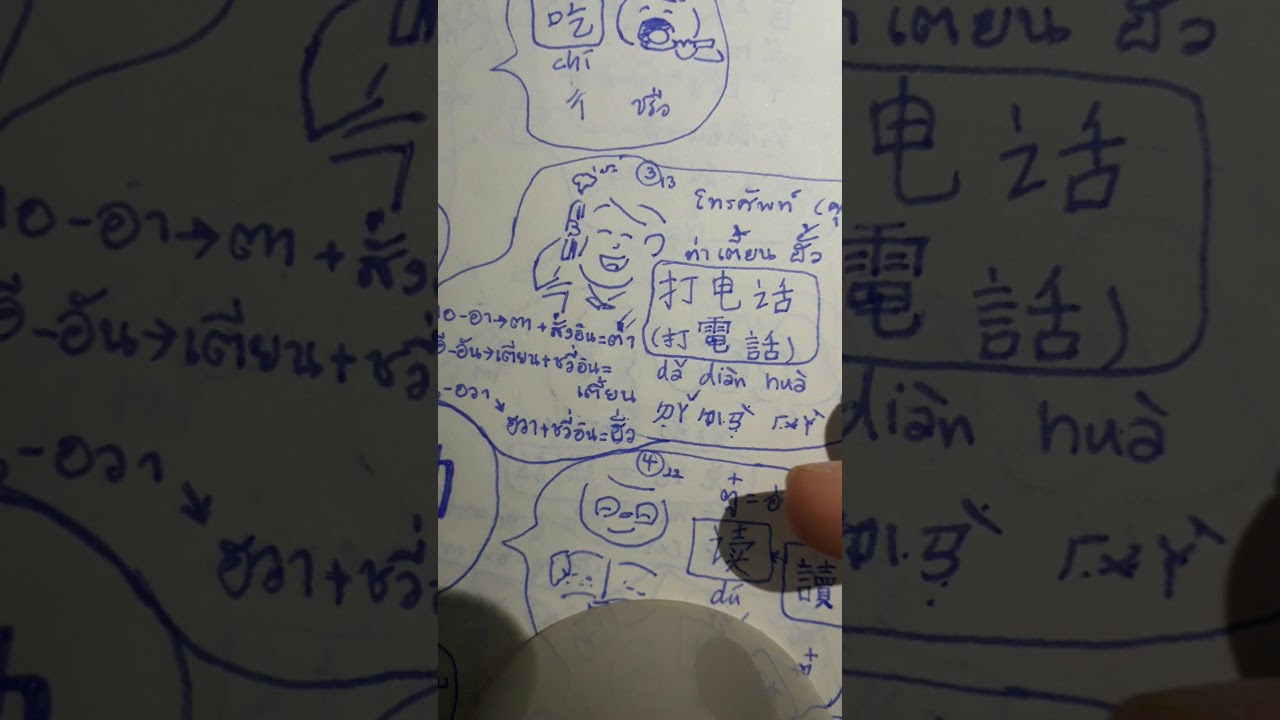 吃
chī
ㄔ ชรือ
③13
โทรศัพท์ (คุ
ต่า เตี้ยน ฮั้ว
打电话
(打電話)
dǎ diàn huà
ㄉㄚˇ ㄉㄧㄢˋ ㄏㄨㄚˋ
อ-อา→ตา+สั่งอิน=ต้า
อี-อัน→เตียน+ชวี่อิน=
เตี้ยน
-อวา
ฮวา+ชวี่อิน=ฮั่ว
④22
读
讀
dú